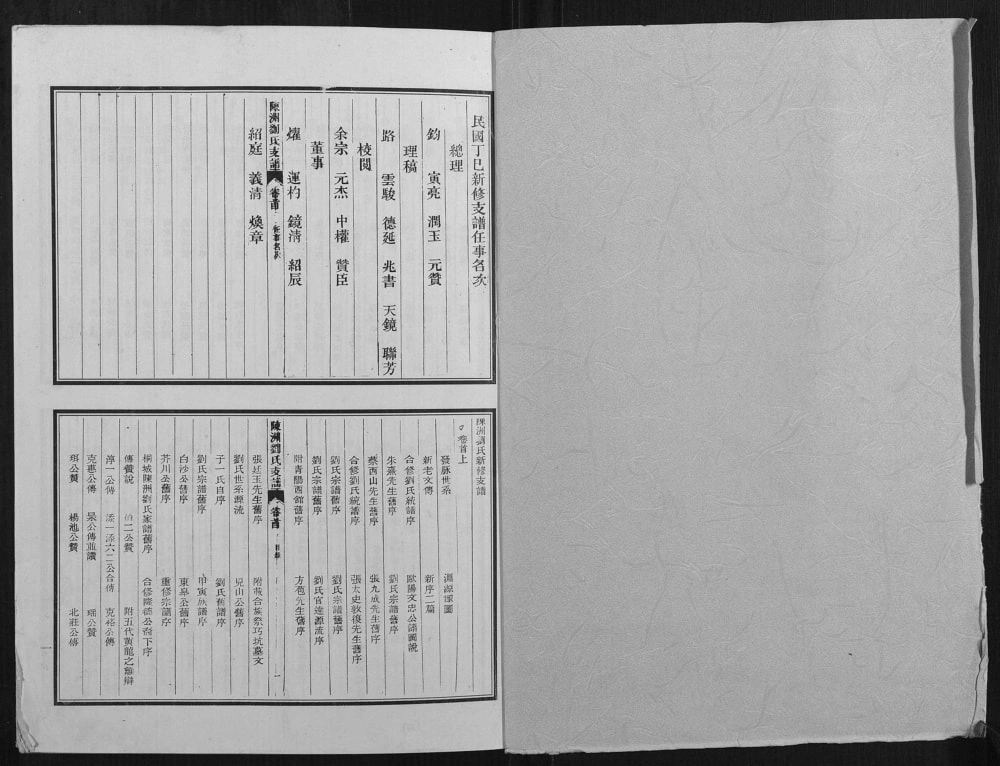 民國丁巳新修支譜任事名次
總理
鈞 寅亮 潤玉 元贊
理稿
路 雲駿 德延 兆書 天鏡 聯芳
校閱
余宗 元杰 中權 贊臣
董事
燿 運杓 鏡清 紹辰
陳洲劉氏支譜 卷首 任事名次
紹庭 義清 煥章
陳洲劉氏新修支譜
卷首上
發脉世系 淵源
新老文傳 新序二篇
合修劉氏統譜序 歐陽文忠公譜圖說
朱熹先生舊序 劉氏宗譜舊序
蔡西山先生舊序 張九成先生舊序
合修劉氏統譜序 張太史敦復先生舊序
劉氏宗譜舊序 劉氏宗譜舊序
劉氏宗譜舊序 劉氏官達源流序
附青陽西館舊序 方苞先生舊序
陳洲劉氏支譜 卷首 目錄
張廷玉先生舊序 附歲合族祭巧坑墓文
劉氏世系源流 兄山公舊序
子一氏自序 劉氏舊譜序
劉氏宗譜舊序 甲寅族譜序
白沙公舊序 東皋公舊序
芥川公舊序 重修宗譜序
桐城陳洲劉氏家譜舊序 合修隆德公裔下序
傳贊說 二公贊 附五代黃龍之難辯
淳一公傳 添一添六二公合傳 克裕公傳
克惠公傳 杲公傳並議 瑶公贊
珥公贊 楊池公贊 北莊公傳